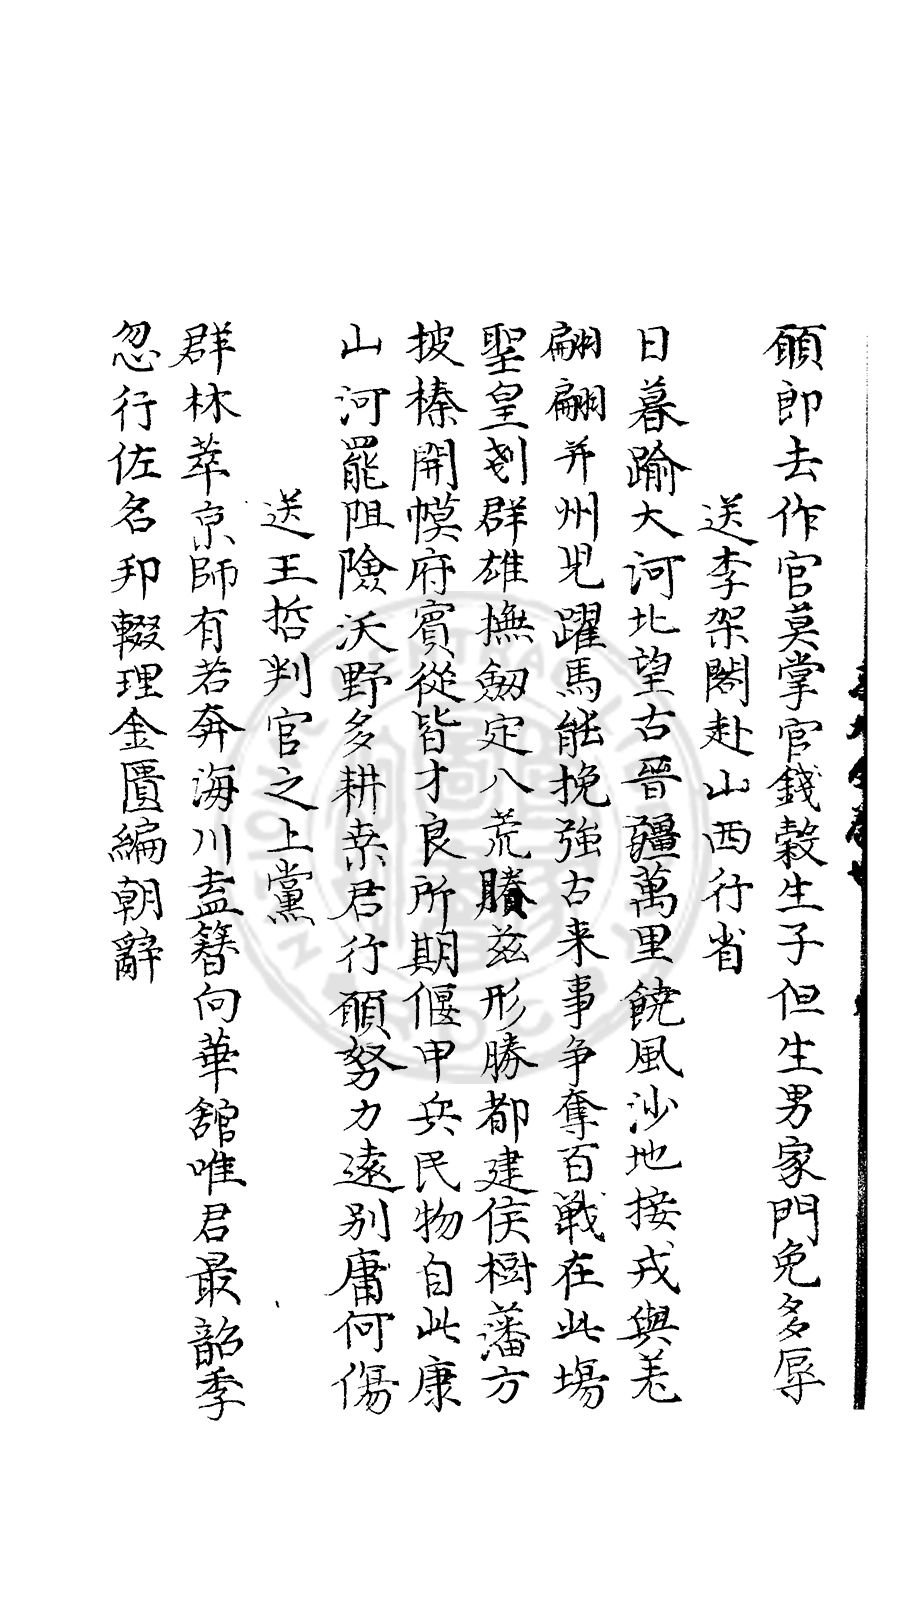 願即去作官莫掌官錢穀生子但生男家門免多辱
送李架閣赴山西行省
日暮踰大河北望古晉疆萬里饒風沙地接戎與羌
翩翩并州児躍馬能挽強古来事争奪百戰在此塲
聖皇剗群雄撫劒定八荒賸兹形勝都建侯樹藩方
披榛開幙府賓從皆才良所期偃甲兵民物自此康
山河罷阻險沃野多耕桒君行願努力遠别庸何傷
送王哲判官之上黨
群材萃京師有若奔海川盍簪向華舘唯君最韶季
忽行佐名邦輟理金匱編朝辭